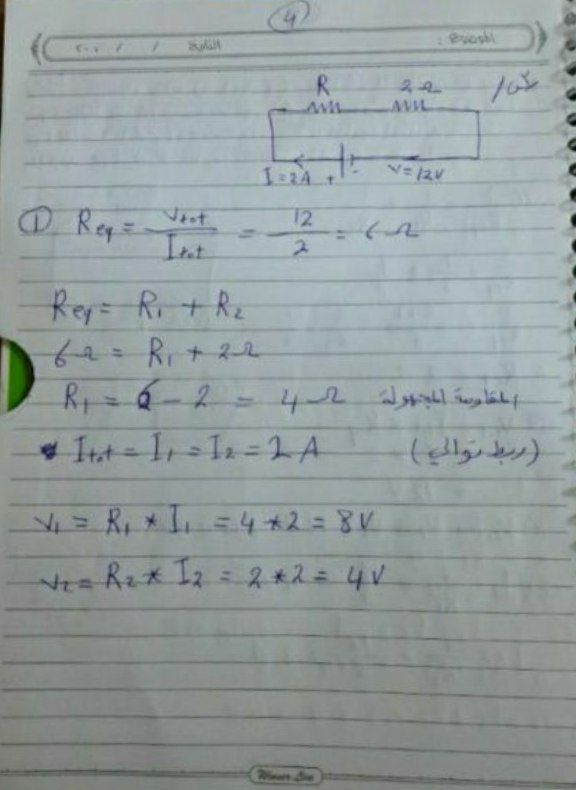 4
الموضوع : التاريخ / / ٢٠٠
R 2Ω س/
I=2A + - V=12V
① Req = Vtot/Itot = 12/2 = 6Ω
Req = R₁ + R₂
6Ω = R₁ + 2Ω
R₁ = 6 - 2 = 4Ω المقاومة المجهولة
Itot = I₁ = I₂ = 2A (ربط توالي)
V₁ = R₁ * I₁ = 4 * 2 = 8V
V₂ = R₂ * I₂ = 2 * 2 = 4V